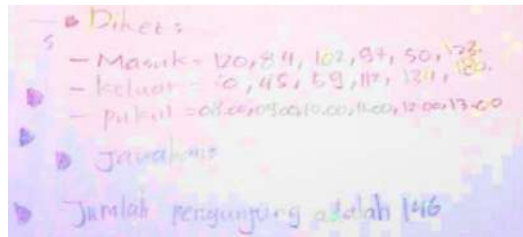 Diket :
- Masuk = 120, 84, 102, 97, 50, 123.
- keluar = 0, 45, 59, 112, 134,
- pukul = 08.00, 09.00, 10.00, 11.00, 12.00, 13.00
Jawaban :
Jumlah pengunjung adalah 146